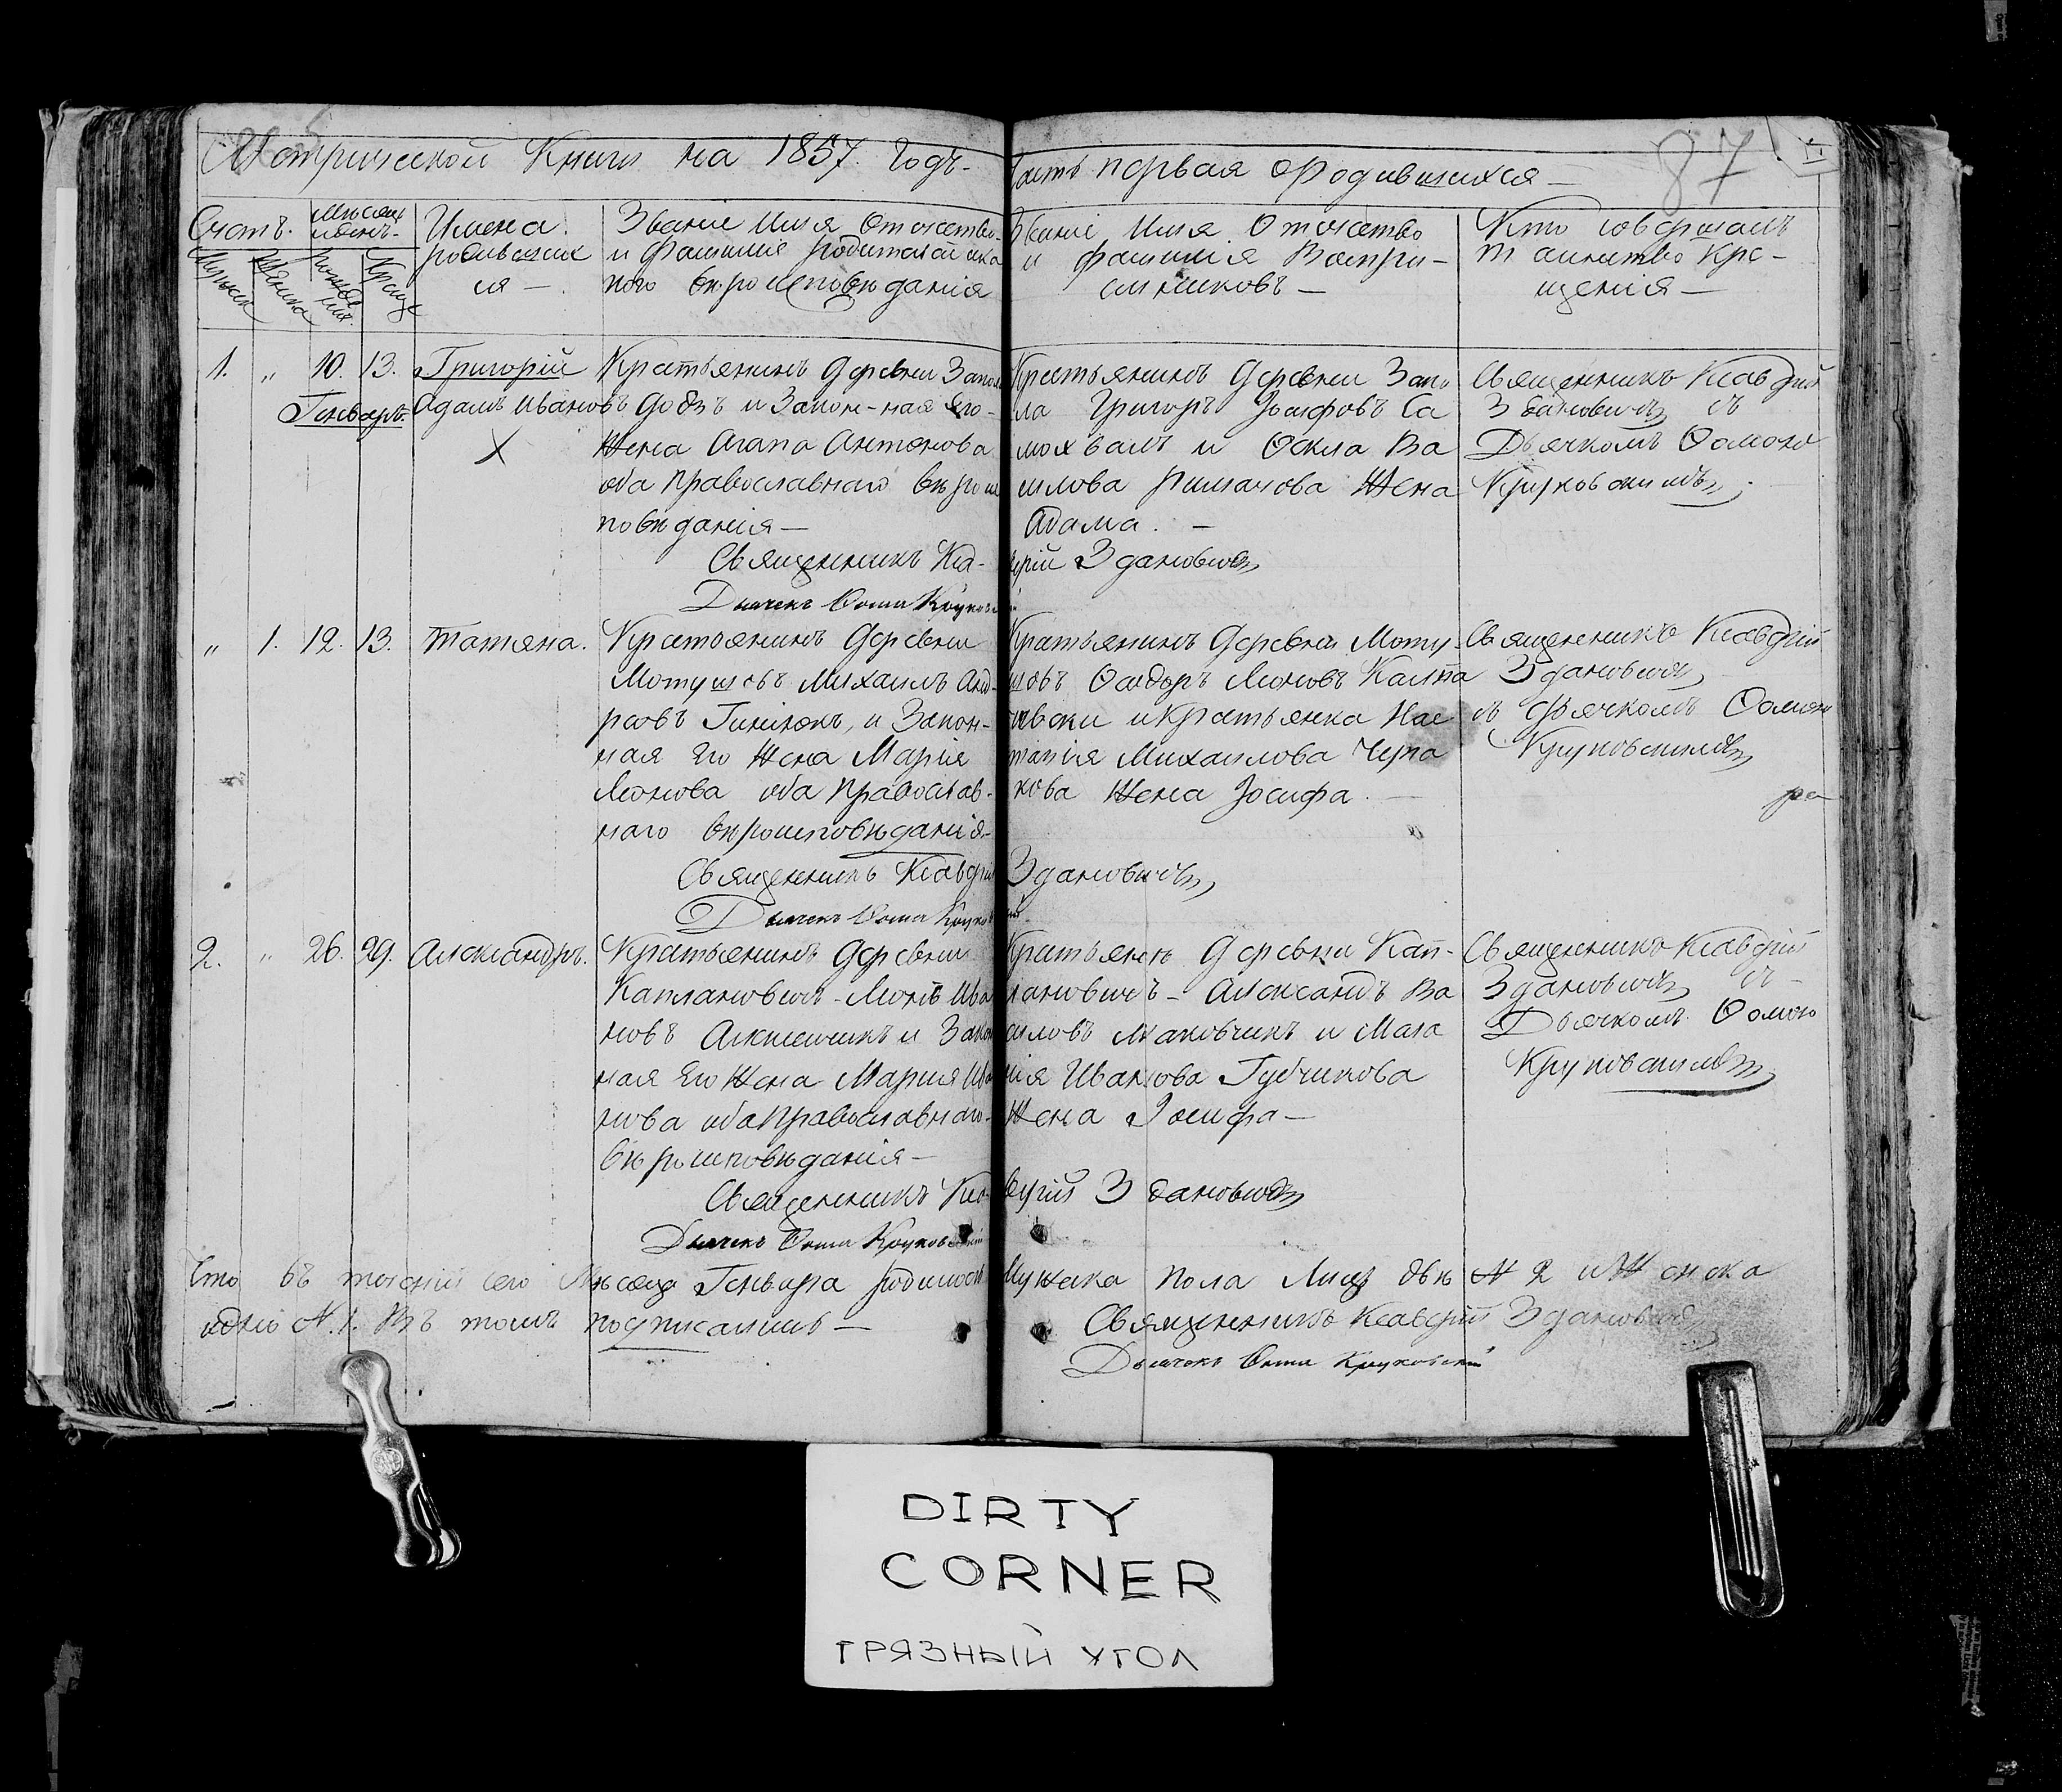 Метрической Книги на 1857. Годъ.
Часть первая о Родившихся
87
Счетъ.
Мѣсяцъ и день.
Имена родившихся
Званіе Имя Отечество и Фамилія родителей и какого вѣроисповѣданія
Званіе Имя Отечество и Фамилія Воспріемниковъ
Кто совершалъ таинство Крещенія
1. „ 10. 13. Григорій
Генварь.
Крестьянинъ деревни
Адамъ Ивановъ и Закон-ная Его
Жена Агапа Антонова
оба Православнаго вѣроис
повѣданія
Крестьянинъ деревни
ла Григоръ Іосифовъ Са
мохвалъ и Ѳекла Ва
силова Жена
Адама.
Священникъ Клавдій
Здановичъ съ
Дьячкомъ Ѳомою
Круковскимъ
Священникъ Кла-
вдій Здановичъ
Дьячекъ Ѳома Круковскій
„ 1. 12. 13. Татяна.
Крестьянинъ деревни
Мотушовъ Михаилъ Анд-
реовъ и Закон-
ная Его Жена Марія
Леонова оба Православ-
наго вѣроисповѣданія
Крестьянинъ деревни Моту-
шовъ Ѳедоръ Леоновъ
и Крестьянка Нас
тазія Михаилова
кова Жена Іосифа.
Священникъ Клавдій
Здановичъ
съ дьячкомъ Ѳомою
Круковскимъ
Священникъ Клавдій Здановичъ
Дьячекъ Ѳома Круковскій
2. „ 26. 29. Александръ.
Крестьянинъ деревни
Каплановичъ Леонъ Ива
новъ и Закон
ная Его Жена Марія Ива
нова оба Православнаго
вѣроисповѣданія
деревни Кап-
лановичъ Александъ Ва
силовъ и Мала
нія Иванова Губчикова
Жена Іосифа
Священникъ Клавдій
Здановичъ съ
Дьячкомъ Ѳомою
Круковскимъ
Священникъ Клавдій Здановичъ
Дьячекъ Ѳома Круковскій
Что въ теченіи сего Мѣсяца Генваря родилось Мужска пола Лицъ двѣ № 2 и Женска
одно №. 1. Въ томъ подписались
Священникъ Клавдій Здановичъ
Дьячекъ Ѳома Круковскій
DIRTY
CORNER
ГРЯЗНЫЙ УГОЛ